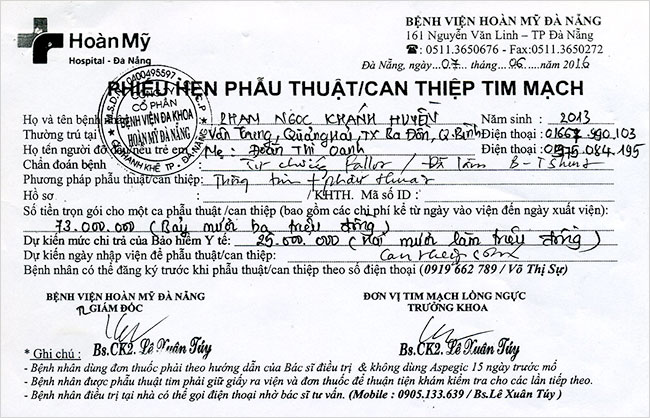 Hoàn Mỹ
Hospital - Đà Nẵng
BỆNH VIỆN HOÀN MỸ ĐÀ NẴNG
161 Nguyễn Văn Linh – TP Đà Nẵng
☎: 0511.3650676 - Fax:0511.3650272
Đà Nẵng, ngày...07...tháng...06...năm 2016
PHIẾU HẸN PHẪU THUẬT/CAN THIỆP TIM MẠCH
M.S.D.N: 0400495597
CỔ PHẦN
BỆNH VIỆN ĐA KHOA
HOÀN MỸ ĐÀ NẴNG
Q. THANH KHÊ - TP. ĐÀ NẴNG
Họ và tên bệnh PHẠM NGỌC KHÁNH HUYỀN Năm sinh : 2013
Thường trú tại Văn Trung, Quảng Hải, TX Ba Đồn, Q.Bình Điện thoại : 01667.990.103
Họ tên người đỡ đầu nếu trẻ em: Mẹ : Đoàn Thị Oanh Điện thoại : 01975.084.195
Chẩn đoán bệnh : Tứ chứng Fallot / Đã làm B-T Shunt
Phương pháp phẫu thuật/can thiệp: Thông tim + phẫu thuật
Hồ sơ : / KHTH. Mã số ID :
Số tiền trọn gói cho một ca phẫu thuật /can thiệp (bao gồm các chi phí kể từ ngày vào viện đến ngày xuất viện):
73.000.000 (Bảy mươi ba triệu đồng)
Dự kiến mức chi trả của Bảo hiểm Y tế: 25.000.000 (Hai mươi lăm triệu đồng)
Dự kiến ngày nhập viện để phẫu thuật/can thiệp:
Bệnh nhân có thể đăng ký trước khi phẫu thuật/can thiệp theo số điện thoại (0919 662 789 / Võ Thị Sự)
BỆNH VIỆN HOÀN MỸ ĐÀ NẴNG
GIÁM ĐỐC
Bs.CK2. Lê Xuân Túy
ĐƠN VỊ TIM MẠCH LỒNG NGỰC
TRƯỞNG KHOA
Bs.CK2. Lê Xuân Túy
* Ghi chú :
- Bệnh nhân dùng đơn thuốc phải theo hướng dẫn của Bác sĩ điều trị & không dùng Aspegic 15 ngày trước mổ
- Bệnh nhân được phẫu thuật tim phải giữ giấy ra viện và đơn thuốc để thuận tiện khám kiểm tra cho các lần tiếp theo.
- Bệnh nhân điều trị tại nhà có thể gọi điện thoại nhờ bác sĩ tư vấn. (Mobile : 0905.133.639 / Bs.Lê Xuân Túy )